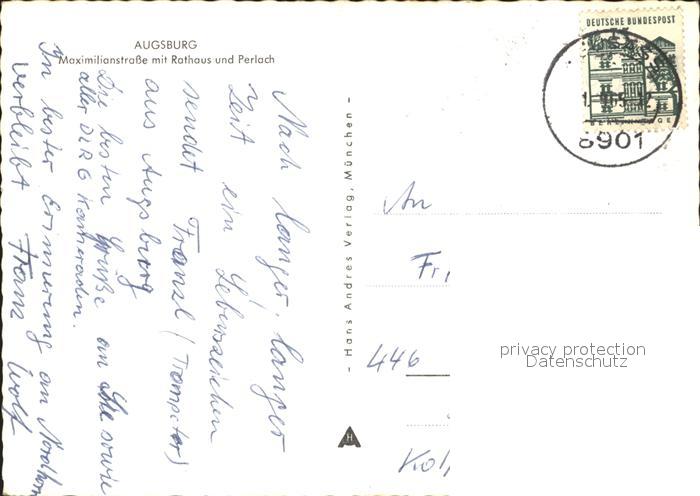 AUGSBURG
Maximilianstraße mit Rathaus und Perlach
Nach langer, langer
Zeit ein Lebenszeichen
sendet Franzl (Trompeter)
aus Augsburg
Die besten Grüße an Sie sowie
aller DLRG Kameraden.
In bester Erinnerung an Nordhorn
verbleibt Franz Wolf
- Hans Andres Verlag, München -
H
DEUTSCHE BUNDESPOST
BERLIN
8901
An
Fr
446
Kol
privacy protection
Datenschutz